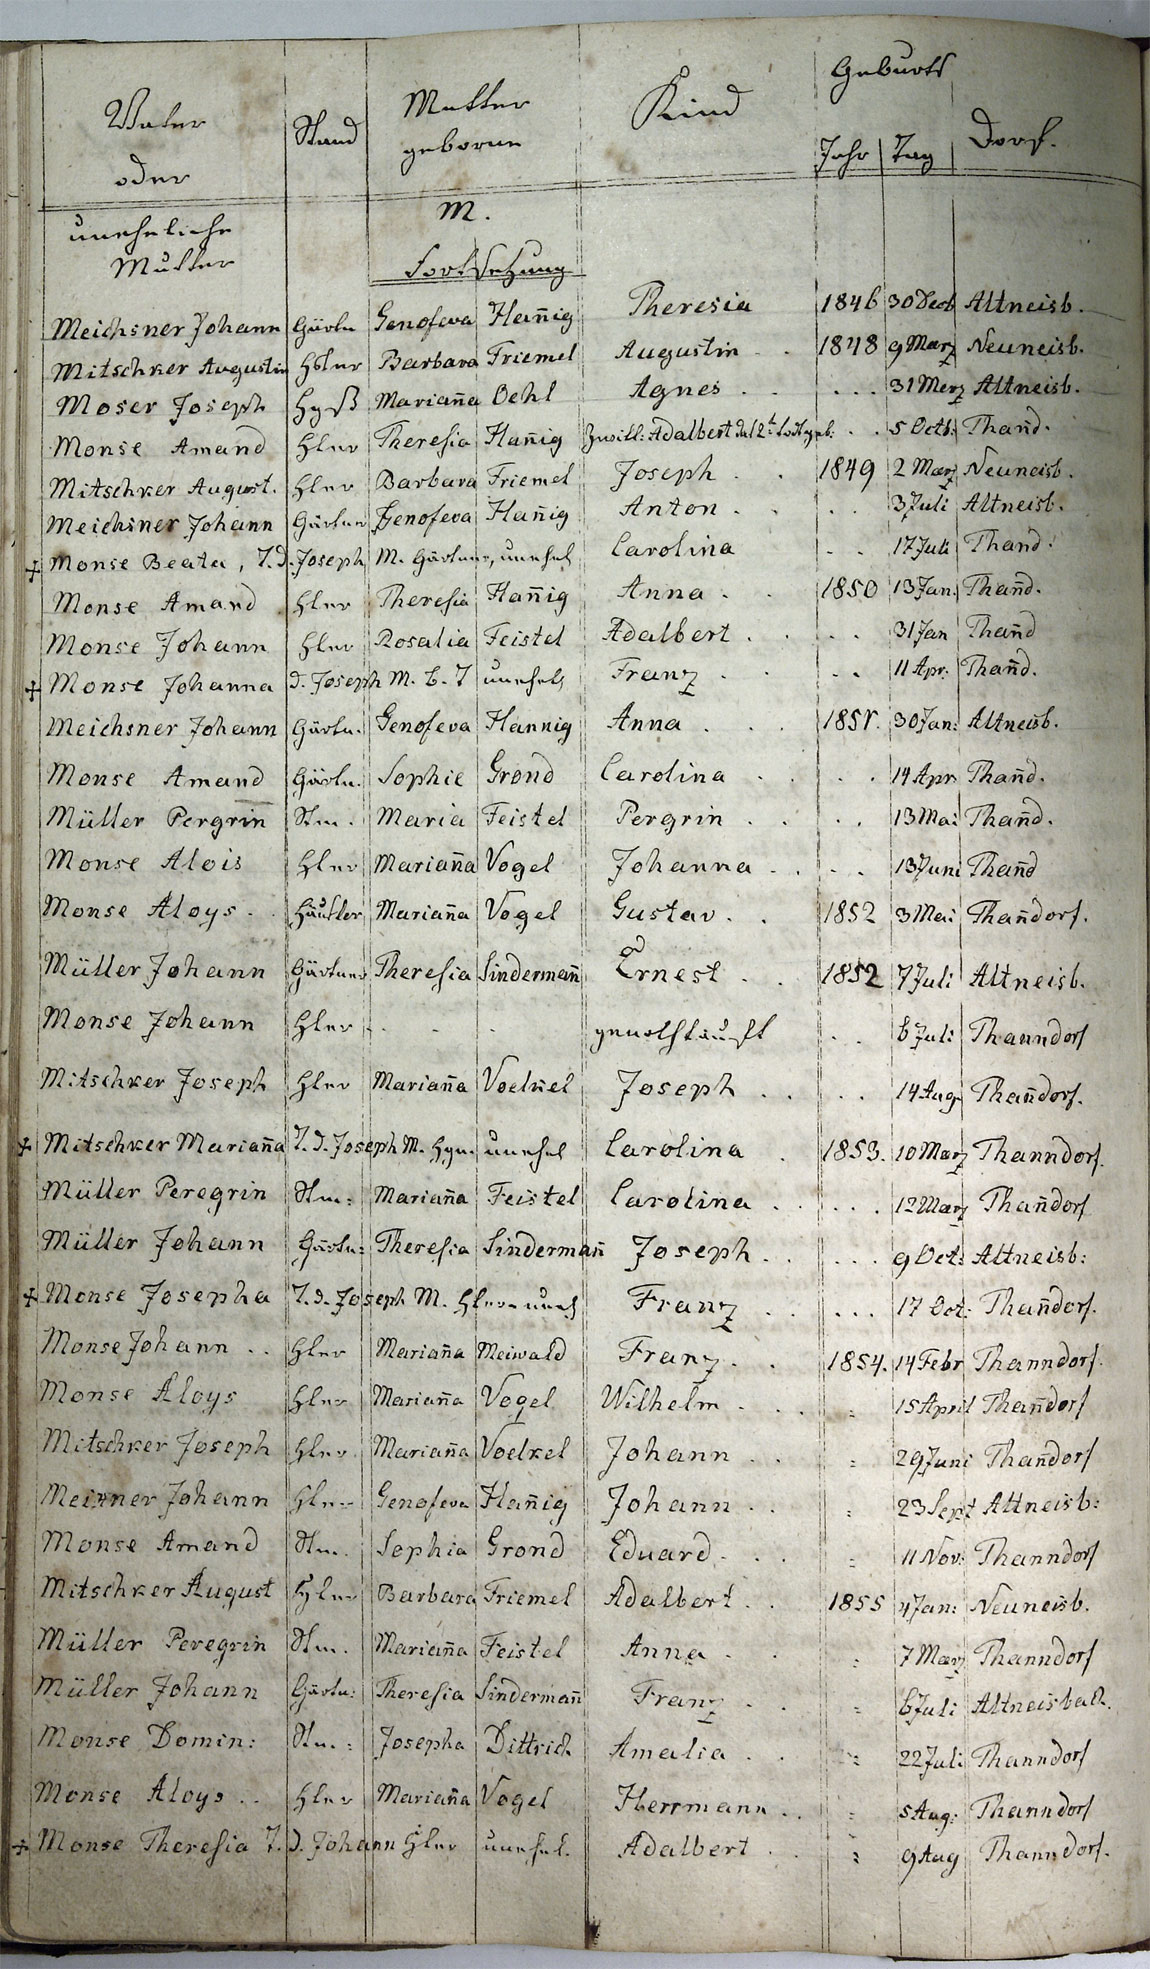 Vater Stand Mutter Kind Geburts
oder geborne Jahr Tag Dorf.
uneheliche M.
Mutter Fortsetzung
Meichsner Johann Gärtn Genofeva Han̄ig Theresia 1846 30 Decb Altneisb.
Mitschker Augustin Hsler Barbara Friemel Augustin . . 1848 9 März Neuneisb.
Moser Joseph Marian̄a Oehl Agnes . . . . . 31 Merz Altneisb.
Monse Amand Hler Theresia Han̄ig Zwill: Adalbert das 2t todtgeb: . . 5 Octb: Than̄d.
Mitschker August. Hler Barbara Friemel Joseph . . 1849 2 März Neuneisb.
Meichsner Johann Gärtner Genofeva Han̄ig Anton . . . . 3 Juli Altneisb.
+ Monse Beata, T. d. Joseph M. Gärtners, unehel Carolina . . 17 Juli Thand.
Monse Amand Hler Theresia Han̄ig Anna . . 1850 13 Jan. Than̄d.
Monse Johann Hler Rosalia Feistel Adalbert . . . . 31 Jan Than̄d
+ Monse Johanna d. Joseph M. b. T unehel Franz . . . . 11 Apr: Than̄d.
Meichsner Johann Gärtn. Genofeva Hannig Anna . . . 1851. 30 Jan: Altneisb.
Monse Amand Gärtn. Sophie Grond Carolina . . . . 14 Apr Than̄d.
Müller Pergrin Stm. Maria Feistel Peregrin . . . . 13 Mai Than̄d.
Monse Alois Hler Marian̄a Vogel Johanna . . . . 13 Juni Than̄d
Monse Aloys . . Häusler Marian̄a Vogel Gustav . . 1852 3 Mai Than̄dorf.
Müller Johann Gärtner Theresia Sinderman̄ Ernest . . 1852 7 Juli Altneisb.
Monse Johann Hler . . . genothtauft . . 6 Juli Thanndorf
Mitschker Joseph Hler Marian̄a Voelkel Joseph . . . . 14 Aug Than̄dorf.
+ Mitschker Marian̄a T. d. Joseph M. unehel Carolina . 1853. 10 März Thanndorf.
Müller Peregrin Stm: Marian̄a Feistel Carolina . . . . . 12 März Than̄dorf
Müller Johann Gärtn: Theresia Sinderman̄ Joseph . . . . . 9 Oct: Altneisb:
+ Monse Josepha T. d. Joseph M. Hlers uneh Franz . . . . . 17 Oct: Than̄dorf.
Monse Johann . . Hler Marian̄a Meiwald Franz . . 1854. 14 Febr Thanndorf.
Monse Aloys Hler Marian̄a Vogel Wilhelm . . . : 15 April Than̄dorf
Mitschker Joseph Hler Marian̄a Voelkel Johann . . : 29 Juni Than̄dorf
Meixner Johann Hler Genofeva Han̄ig Johann . . : 23 Sept Altneisb:
Monse Amand Stm. Sophia Grond Eduard . . . : 11 Nov: Thanndorf
Mitschker August Hler Barbara Friemel Adalbert . . 1855 4 Jan: Neuneisb.
Müller Peregrin Stm. Marian̄a Feistel Anna . . : 7 März Thanndorf
Müller Johann Gärtn: Theresia Sinderman̄ Franz . . : 6 Juli Altneisbach.
Monse Domin: Stm: Josepha Dittrich Amalia . . : 22 Juli Thanndorf
Monse Aloys . . Hler Marian̄a Vogel Herrmann . . : 5 Aug: Thanndorf
+ Monse Theresia T. d. Johann Hler unehel. Adalbert . . : 9 Aug Thanndorf.